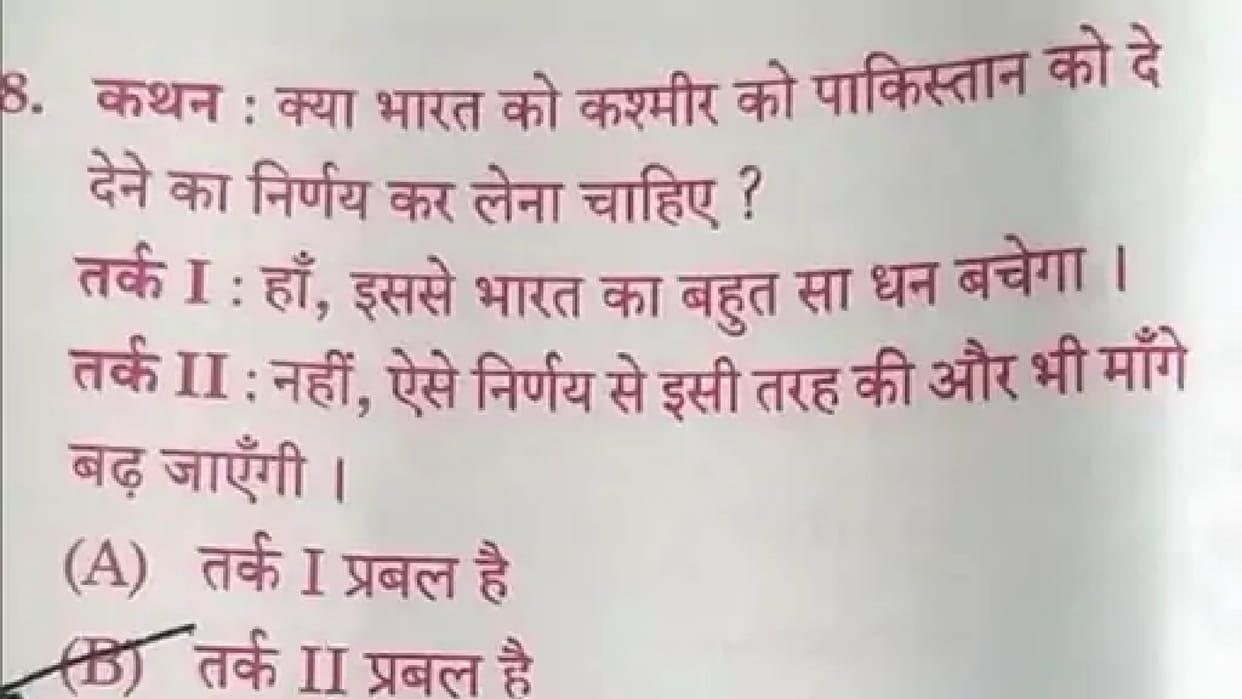 8. कथन : क्या भारत को कश्मीर को पाकिस्तान को दे
देने का निर्णय कर लेना चाहिए ?
तर्क I : हाँ, इससे भारत का बहुत सा धन बचेगा ।
तर्क II : नहीं, ऐसे निर्णय से इसी तरह की और भी माँगे
बढ़ जाएँगी ।
(A) तर्क I प्रबल है
(B) तर्क II प्रबल है